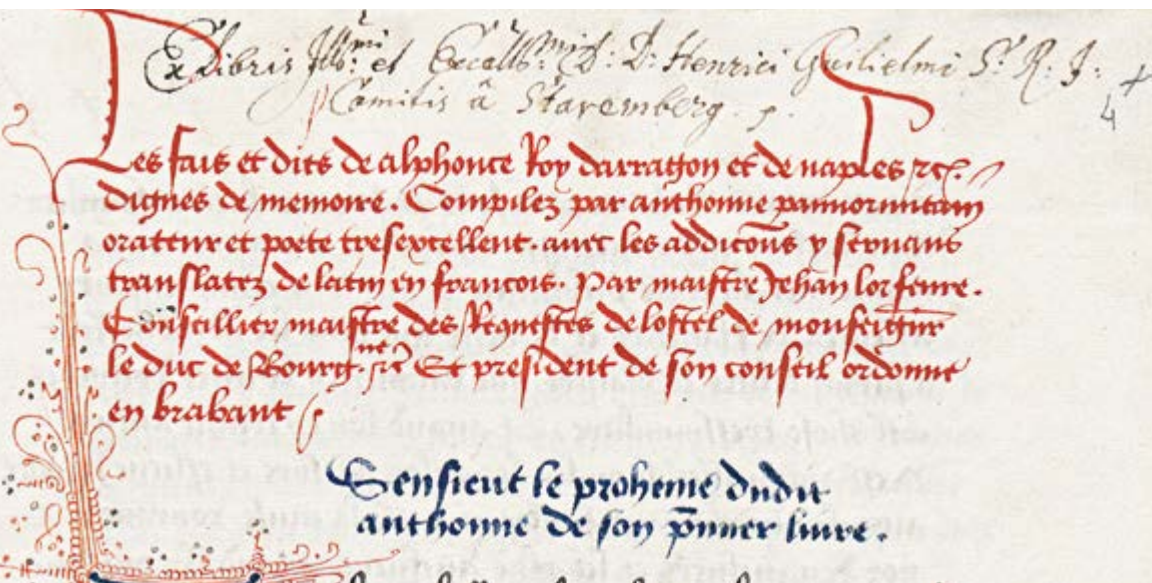 Ex Libris Illmi. et Excellmi. D: D: Henrici Guilielmi S. R. I:
Comitis â Staremberg.
4
Les fais et dits de alphonce Roy darragon et de naples etc.
dignes de memoire. Compilez par anthonne pannormitain
orateur et poete tresexcellent. auec les addicons y seruans
translatez de latin en francois. Par maistre Jehan lorfeure.
Conseillier maistre des Requestes de lostel de monseigr
le duc de Bourgne etc Et president de son conseil ordonne
en brabant
Sensieut le proheme dudit
anthonne de son pmier liure.